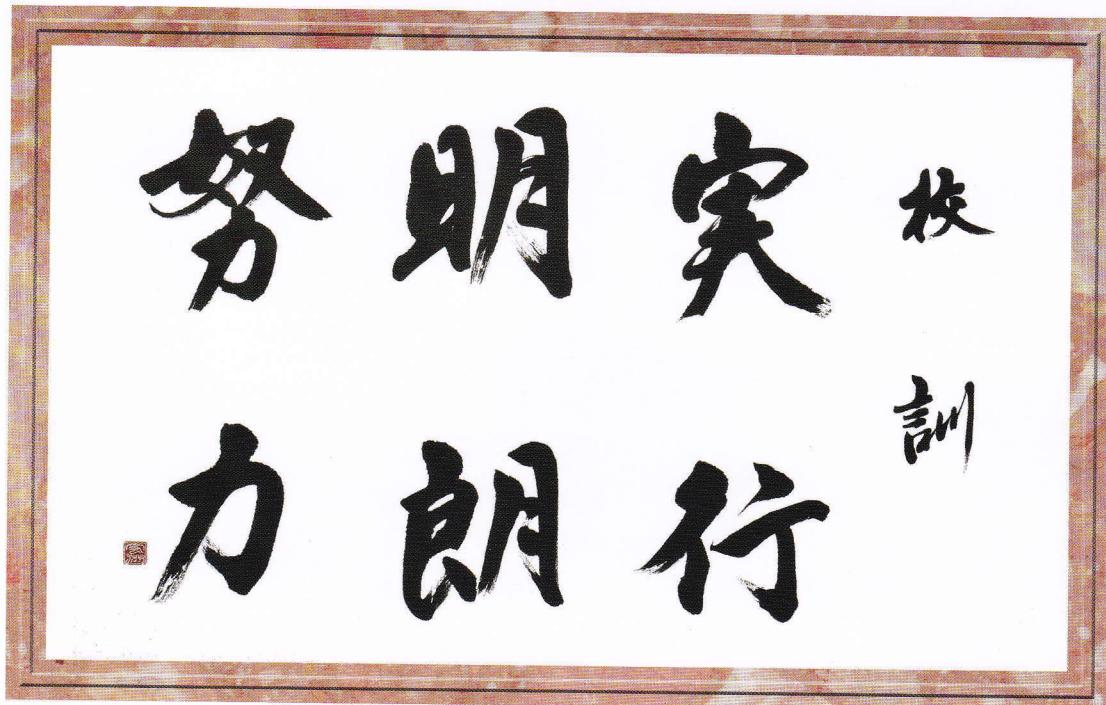 校訓
実行
明朗
努力